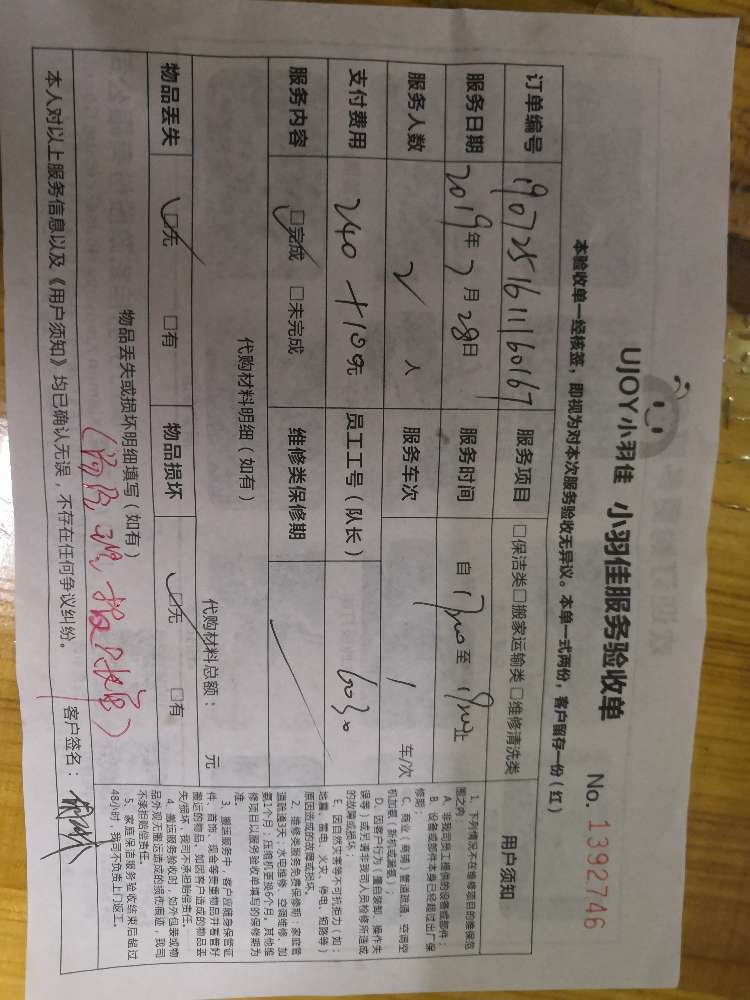 UJOY小羽佳 小羽佳服务验收单
No. 1392746
本验收单一经核签，即视为对本次服务验收无异议。本单一式两份，客户留存一份（红）
订单编号 190725161160167 服务项目 □保洁类□搬家运输类□维修清洗类
服务日期 2019年7月28日 服务时间 自 17:00 至 19:00止
服务人数 2 人 服务车次 1 车/次
支付费用 240+100元 员工工号（队长） 6030
服务内容 □完成 □未完成 维修类保修期
代购材料明细（如有）
代购材料总额： 元
物品丢失 □无 □有 物品损坏 □无 □有
物品丢失或损坏明细填写（如有）
本人对以上服务信息以及《用户须知》均已确认无误，不存在任何争议纠纷。
客户签名：
用户须知
1、下列情况不在维修项目的维保范
围之内：
A、非我司员工提供的设备或部件；
B、设备或部件本身已经超过出厂保
修期；
C、商业（商铺）管道疏通、空调空
机加氨（新机或漏氨）；
D、因客户行为（擅自装卸、操作失
误等）或另请非我司人员检修所造成
的故障或损坏；
E、因自然灾害等不可抗拒力（如：
地震、雷击、火灾、停电、短路等）
原因造成的故障或损坏。
2、维修类服务免费保修期：家庭管
道疏通3天，水电维修、空调维修、加
氨1个月；压缩机更换6个月，其他维
修项目以服务验收单填写的保修期为
准。
3、搬运服务中，客户应随身保管证
件、首饰、现金等贵重物品并看管好
搬运的物品，如因客户造成的物品丢
失损坏，我司不承担赔偿责任。
4、搬运服务验收时，如外包装或物
品外观无搬运造成的损伤痕迹，我司
不承担赔偿责任。
5、家庭保洁服务验收结束后超过
48小时，我司不负责上门返工。